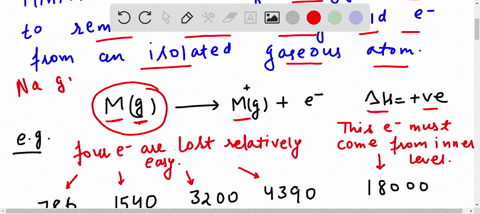 to rem e⁻
from an isolated gaseous atom.
Na g.
M(g) → M⁺(g) + e⁻ ΔH = +ve
e.g.
four e⁻ are lost relatively easy.
This e⁻ must come from inner level.
786 1540 3200 4390 18000